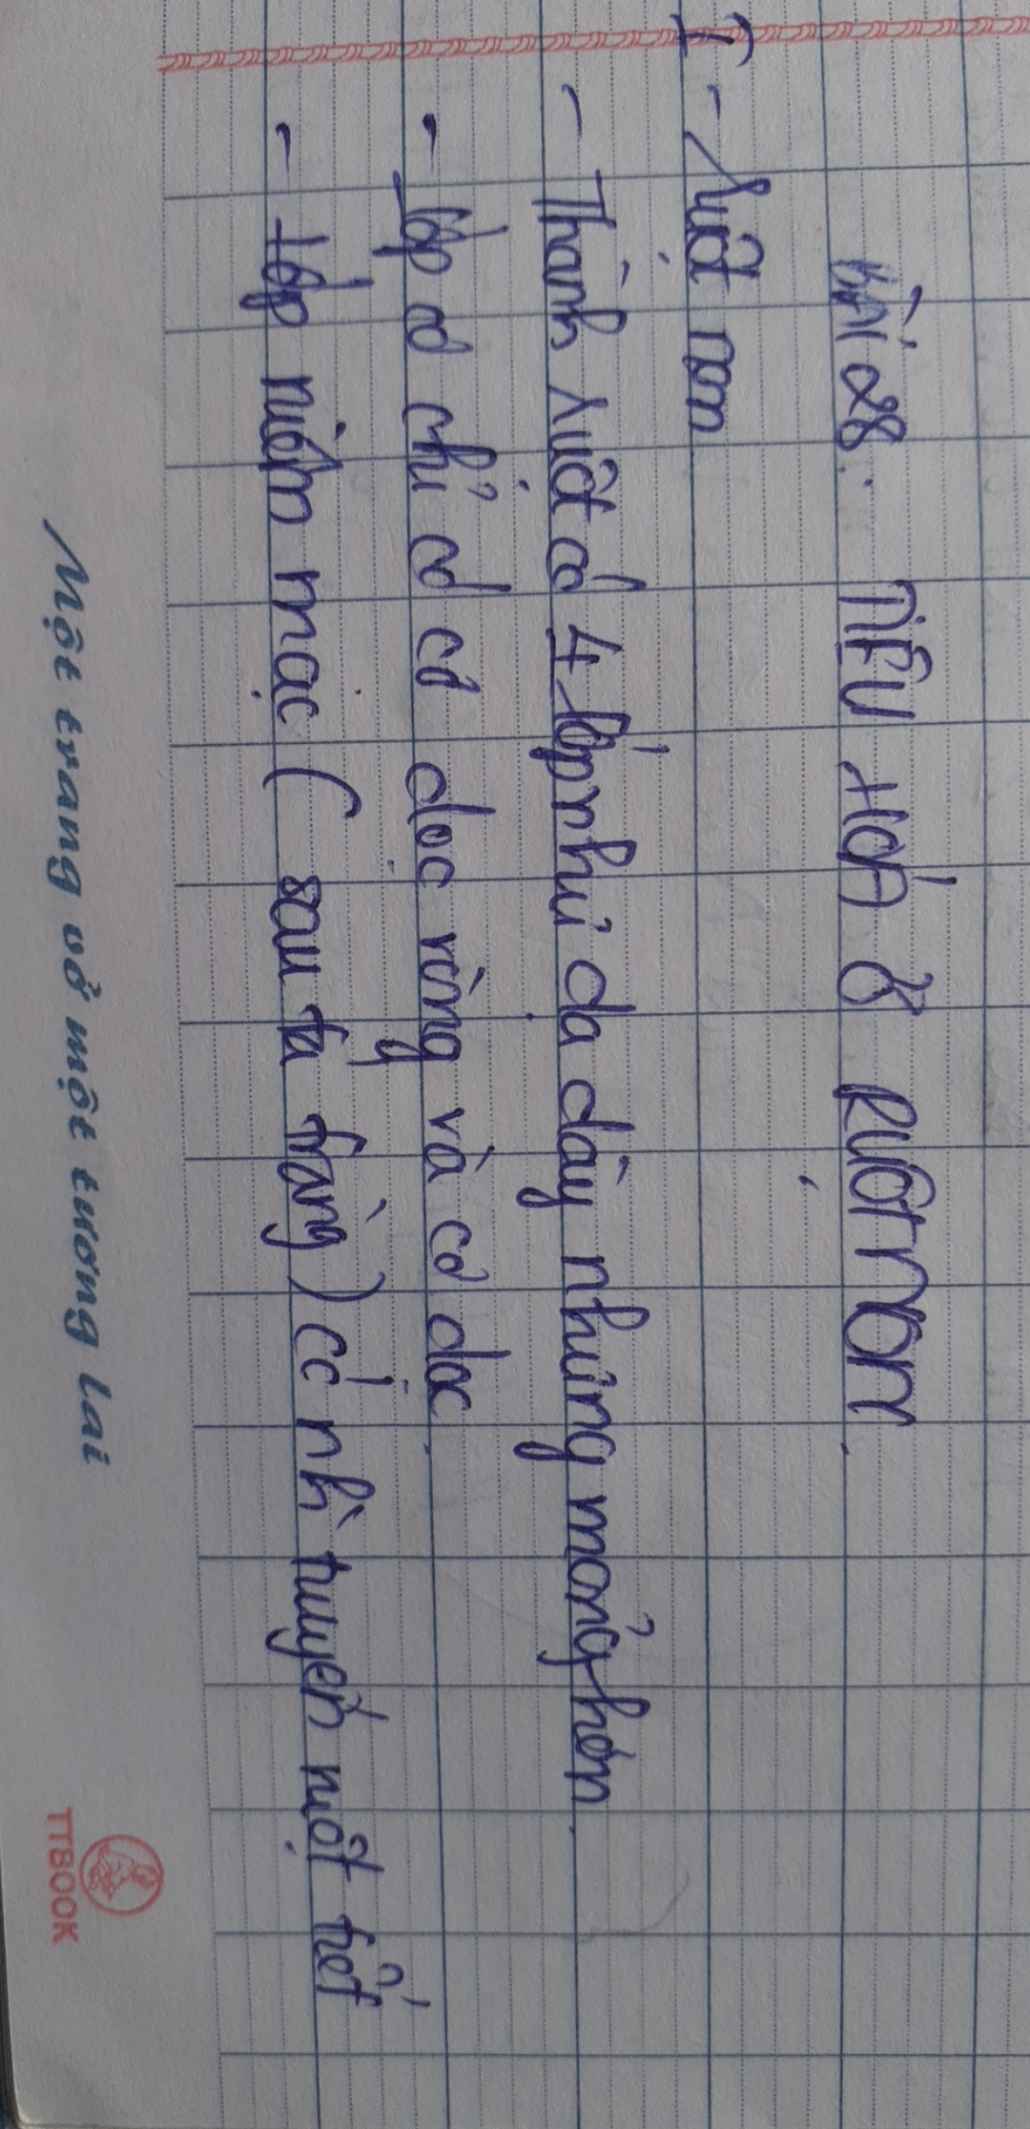 Bài 28: TIÊU HOÁ Ở RUỘT NON.
I - Ruột non
- Thành ruột có 4 lớp như dạ dày nhưng mỏng hơn.
- lớp cơ chỉ có cơ dọc vòng và cơ dọc.
- Lớp niêm mạc ( sau tá tràng ) có nhì tuyến ruột tiết
Một trang vở một tương lai
TTBOOK